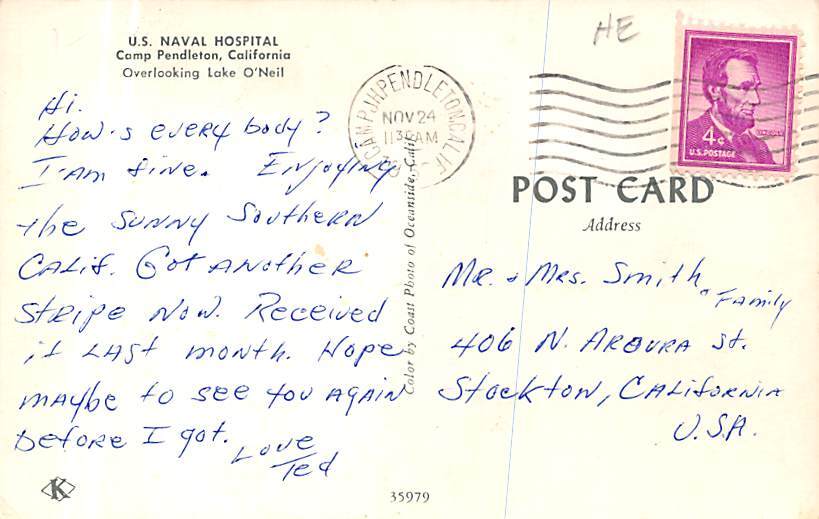 U.S. NAVAL HOSPITAL
Camp Pendleton, California
Overlooking Lake O'Neil
Hi.
How's every body?
I am fine. Enjoying
the sunny Southern
Calif. Got another
stripe now. Received
it last month. Hope
maybe to see you again
before I got.
Love
Ted
35979
K
Color by Coast Photo of Oceanside, Calif.
HE
CAMP PENDLETON CALIF
NOV 24
AM
4¢
U.S. POSTAGE
POST CARD
Address
Mr. & Mrs. Smith
" Family
406 N. Arbura St.
Stockton, California
U.S.A.